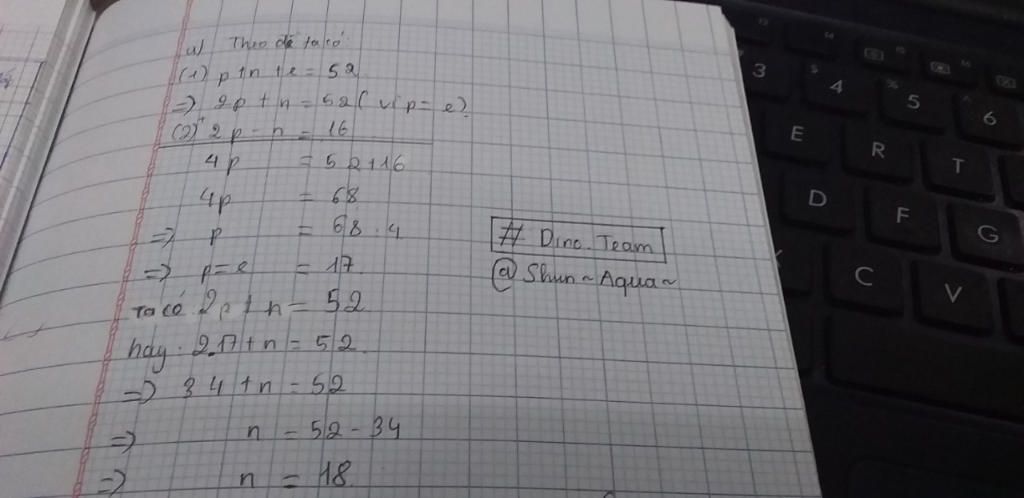 a) Theo đề ta có:
(1) p+n+e = 52
=> 2p+n = 52 (vì p=e)
(2)+ 2p-n = 16
4p = 52+16
4p = 68
=> p = 68 : 4
=> p=e = 17
Ta có 2p+n = 52
hay: 2.17+n = 52
=> 34+n = 52
=> n = 52-34
=> n = 18
# Dino.Team
@ Shun~Aqua~
3
$ 4
% 5
^ 6
E
R
T
D
F
G
C
V